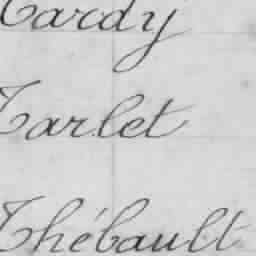 Tardy
Tarlet
Thébault